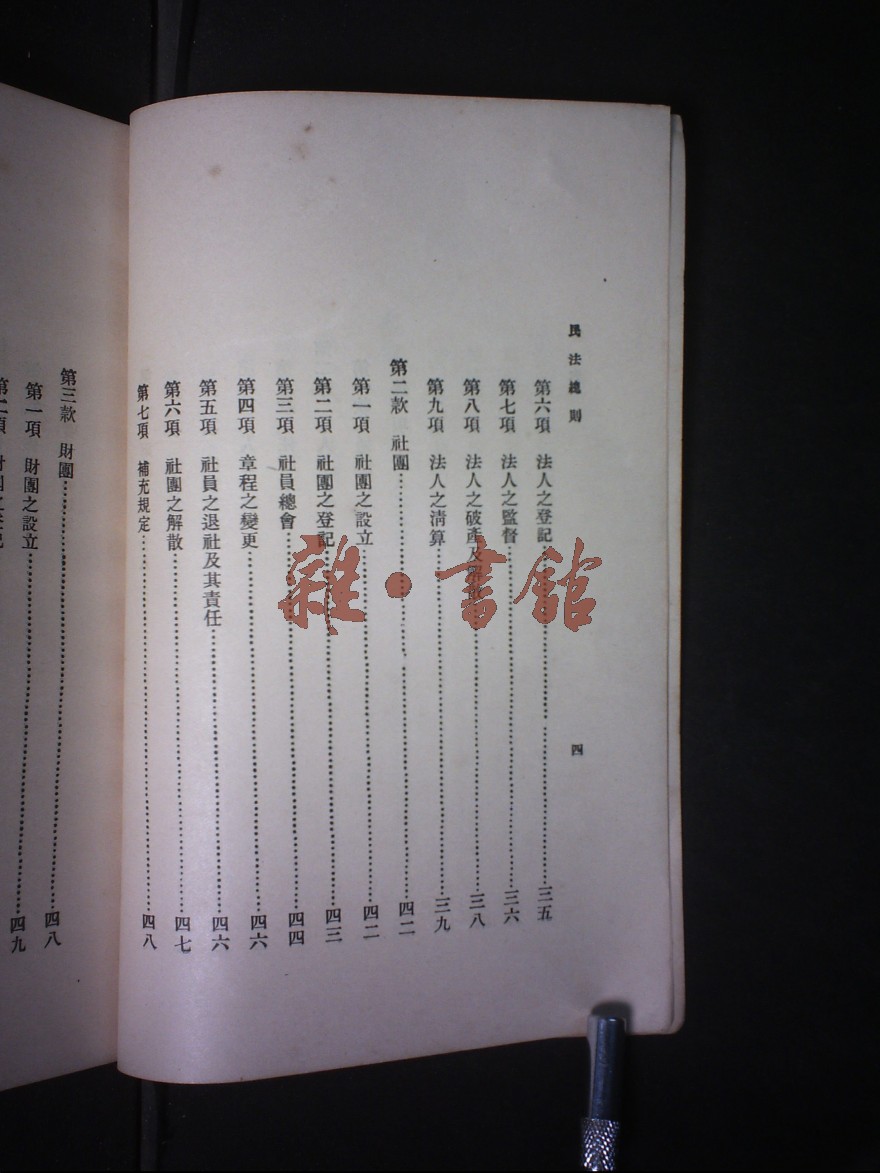 民法總則
四
第六項 法人之登記……三五
第七項 法人之監督……三六
第八項 法人之破產及解散……三八
第九項 法人之清算……三九
第二款 社團……四二
第一項 社團之設立……四二
第二項 社團之登記……四三
第三項 社員總會……四四
第四項 章程之變更……四六
第五項 社員之退社及其責任……四六
第六項 社團之解散……四七
第七項 補充規定……四八
第三款 財團……四八
第一項 財團之設立……四九
第二項
雜·書館